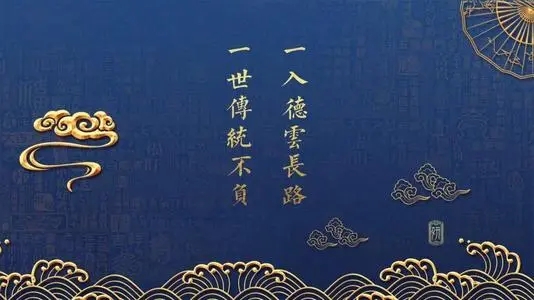 一入德雲長路
一世傳統不負